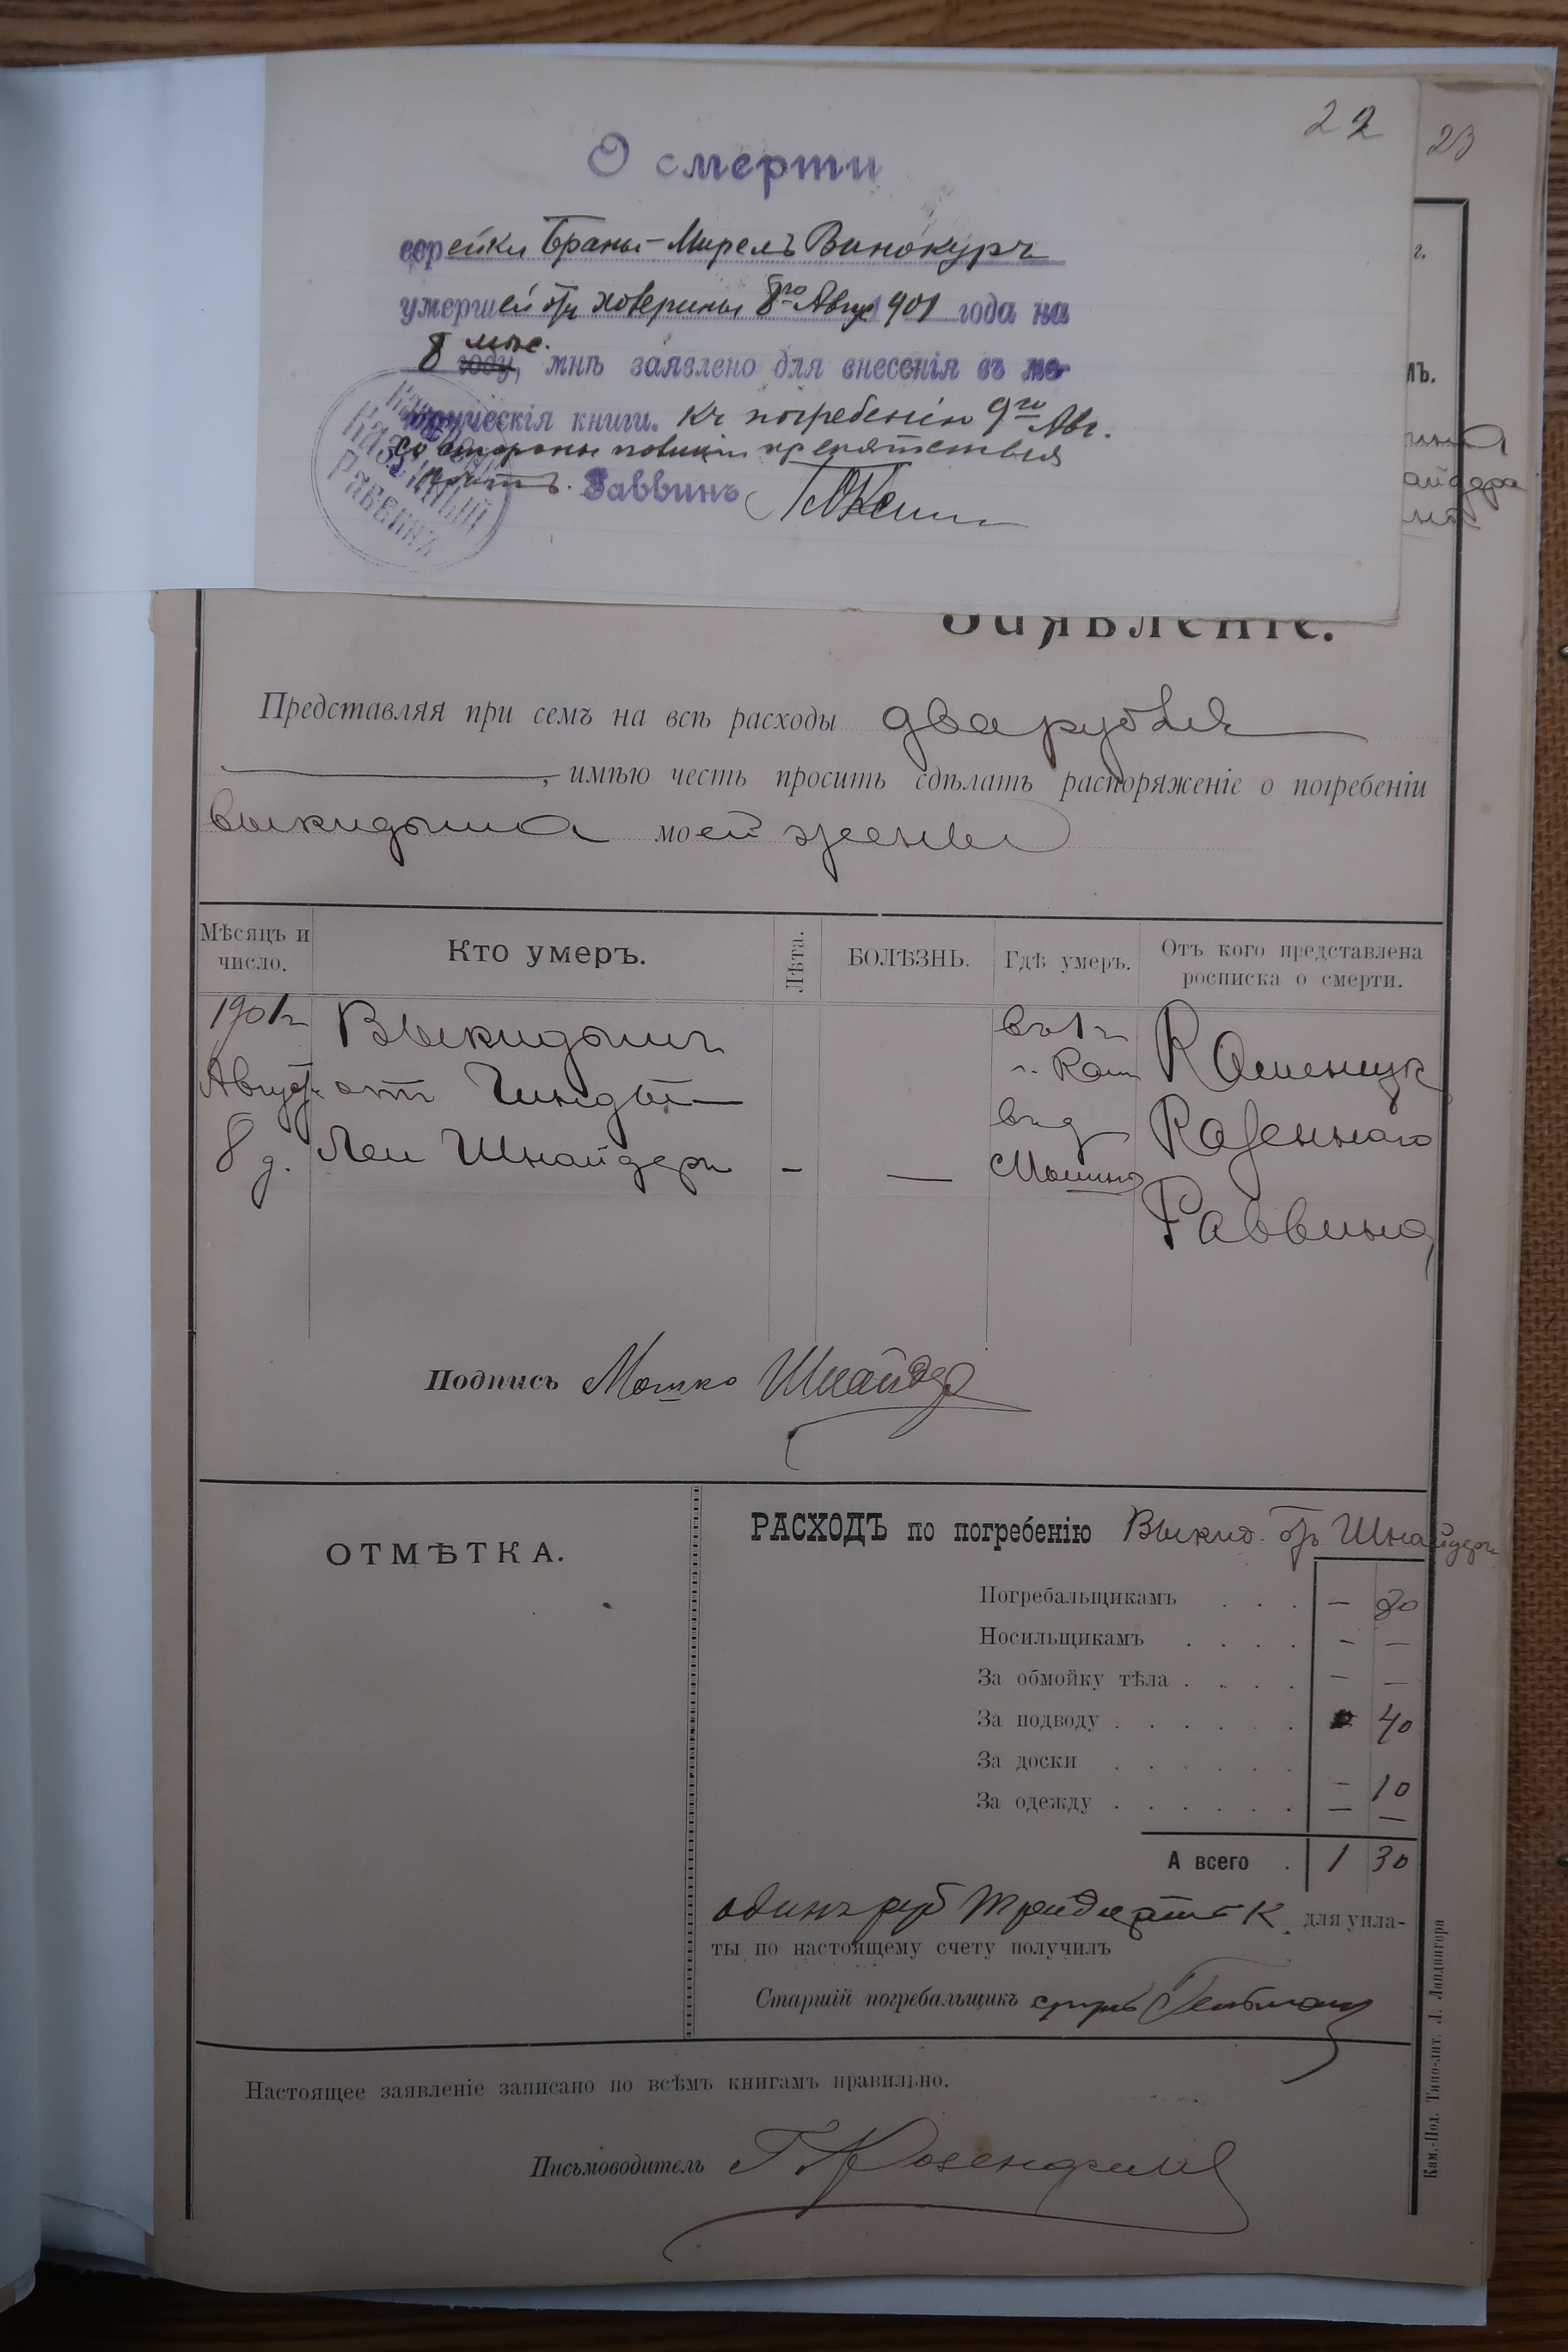 22
23
О смерти
еврейки Браны-Мирель Винокуръ
умершей отъ холерины 8го Авгус 1901 года на
8 мѣс. году, мнѣ заявлено для внесенія въ ме-
трическія книги. Къ погребенію 9го Авг.
со стороны полиціи препятствия
нѣтъ. Раввинъ
Казенный
Раввинъ
г.
айдера
Заявленіе.
Представляя при семъ на всѣ расходы два рубля
, имѣю честь просить сдѣлать распоряженіе о погребеніи
выкидыша моей жены
Мѣсяцъ и число. Кто умеръ. Лѣта. БОЛѢЗНЬ. Гдѣ умеръ. Отъ кого представлена росписка о смерти.
1901г Выкидышъ въ 1ч Каменецк
Август. отъ Гинды- г. Кам Казеннаго
8 д. Леи Шнайдеръ - — въ д Мошино Раввина
Подпись Мошко Шнайдер
ОТМѢТКА.
РАСХОДЪ по погребенію Выкид. отъ Шнайдеръ
Погребальщикамъ . . . — 80
Носильщикамъ . . . . - —
За обмойку тѣла . . . . — —
За подводу . . . . . . 40
За доски . . . . . — 10
За одежду . . . . . . — —
А всего . 1 30
одинъ руб тридцать К. для упла-
ты по настоящему счету получилъ
Старшій погребальщикъ
Настоящее заявленіе записано по всѣмъ книгамъ правильно.
Письмоводитель Г. Розенфельд
Кам.-Под. Типо-лит. Л. Ландвигера